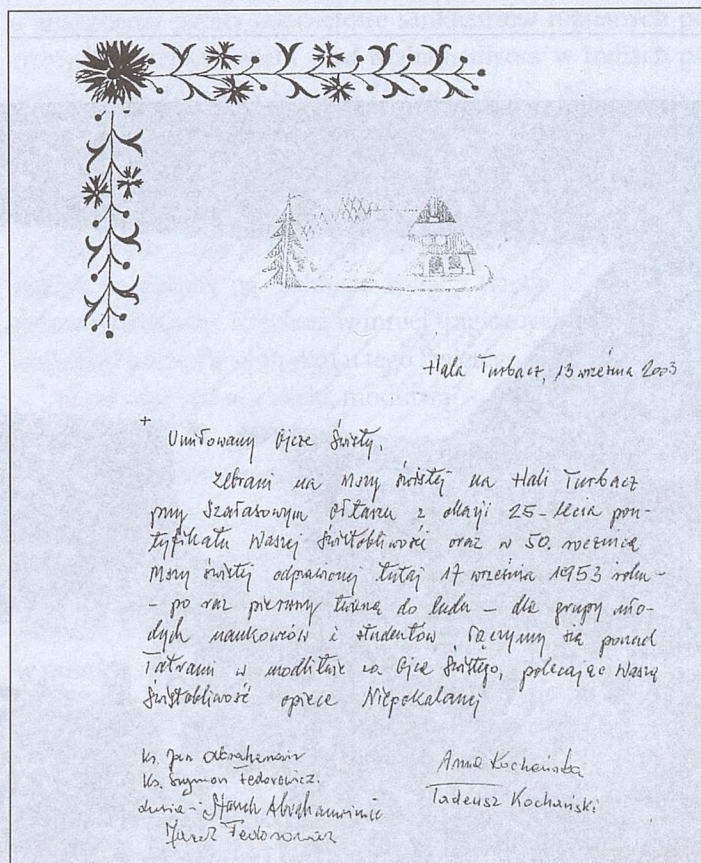 Hala Turbacz, 13 września 2003
+
Umiłowany Ojcze Święty,
Zebrani na Mszy świętej na Hali Turbacz
przy Szałasowym Ołtarzu z okazji 25-lecia pon-
tyfikatu Waszej Świętobliwości oraz w 50. rocznicę
Mszy świętej odprawionej tutaj 17 września 1953 roku -
- po raz pierwszy twarzą do ludu - dla grupy mło-
dych naukowców i studentów łączymy się ponad
Tatrami w modlitwie za Ojca Świętego, polecając Waszą
Świętobliwość opiece Niepokalanej
Ks. Jan Abrahamowicz
Ks. Szymon Fedorowicz
Anna Kochańska
Tadeusz Kochański
Danuta i Marek Abrahamowicz
Jacek Fedorowicz